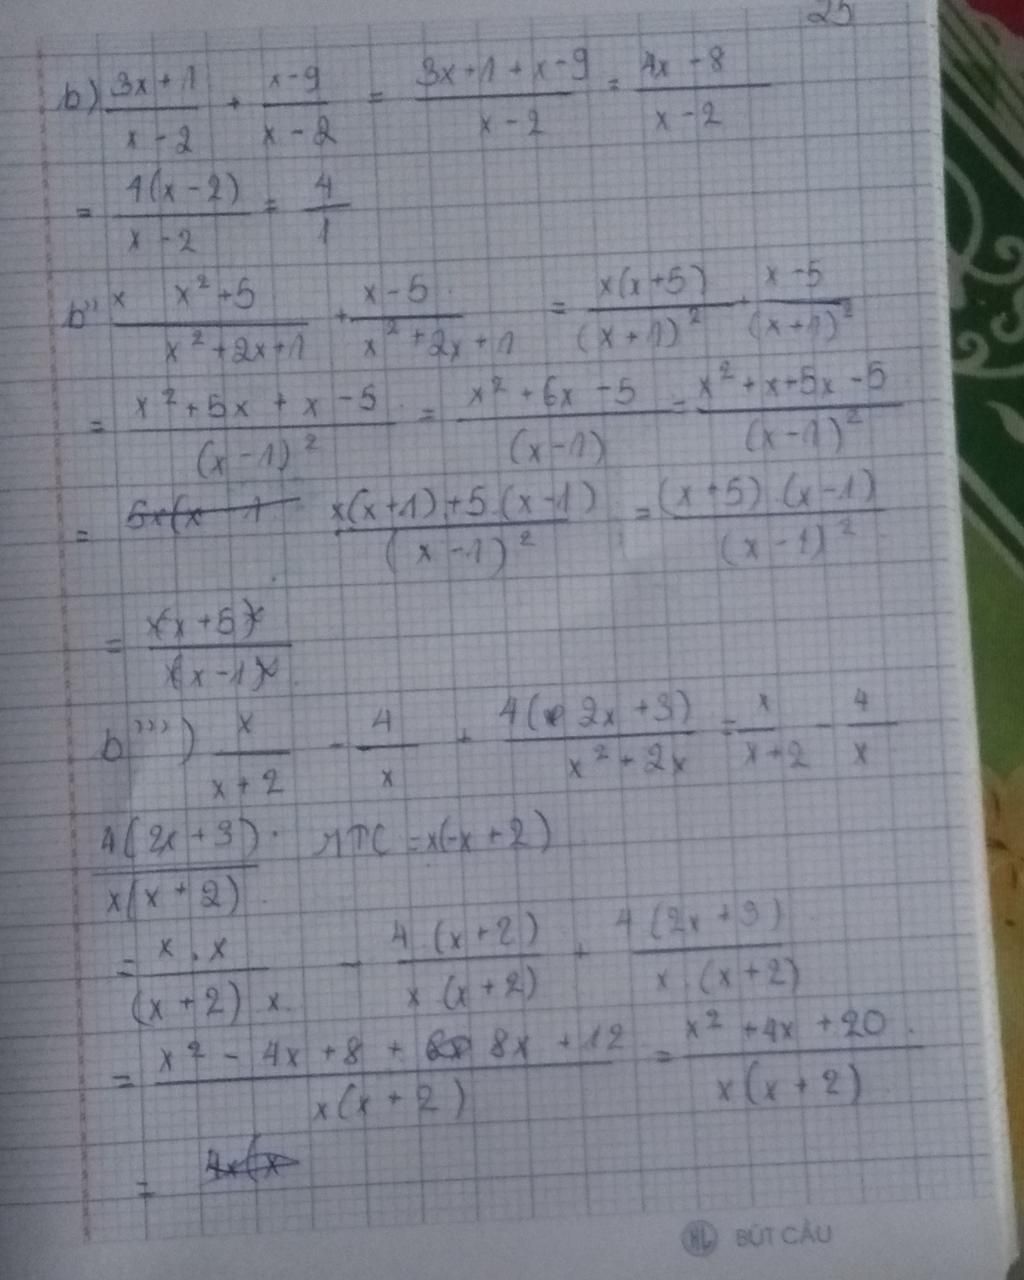 25
b) \frac{3x+1}{x-2} + \frac{x-9}{x-2} = \frac{3x+1+x-9}{x-2} = \frac{4x-8}{x-2}
= \frac{4(x-2)}{x-2} = \frac{4}{1}
b'' \frac{x x^2+5}{x^2+2x+1} + \frac{x-5}{x^2+2x+1} = \frac{x(x+5)}{(x+1)^2} + \frac{x-5}{(x+1)^2}
= \frac{x^2+5x+x-5}{(x-1)^2} = \frac{x^2+6x-5}{(x-1)} = \frac{x^2+x+5x-5}{(x-1)^2}
= \frac{x(x+1)+5.(x-1)}{(x-1)^2} = \frac{(x+5).(x-1)}{(x-1)^2}
= \frac{x+5}{x-1}
b''') \frac{x}{x+2} - \frac{4}{x} + \frac{4(2x+3)}{x^2+2x} = \frac{x}{x+2} - \frac{4}{x}
\frac{4(2x+3)}{x(x+2)} . MTC = x(x+2)
= \frac{x.x}{(x+2)x} - \frac{4.(x+2)}{x(x+2)} + \frac{4(2x+3)}{x.(x+2)}
= \frac{x^2-4x+8+8x+12}{x(x+2)} = \frac{x^2+4x+20}{x(x+2)}
=
BÚT CÂU